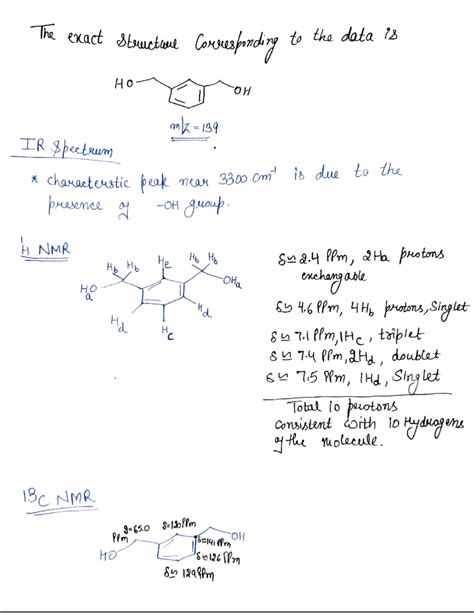 The exact structure Corresponding to the data is
HO
OH
m/z = 139
IR Spectrum
* characterstic peak near 3300 cm-1 is due to the
presence of -OH group.
1H NMR
Hb Hb He Hb Hb
HO
a
OHa
Hd Hd
Hc
δ≃2.4 PPm, 2Ha protons
exchangable
δ≃ 4.6 PPm, 4Hb protons, Singlet
δ≃ 7.1 PPm, 1Hc, triplet
δ≃ 7.4 PPm, 2Hd, doublet
δ≃ 7.5 PPm, 1Hd, Singlet
Total 10 protons
consistent with 10 Hydrogens
of the molecule.
13C NMR
δ=65.0
PPm
δ=120 PPm
OH
HO
δ≃141 PPm
δ≃126 PPm
δ≃ 129 PPm